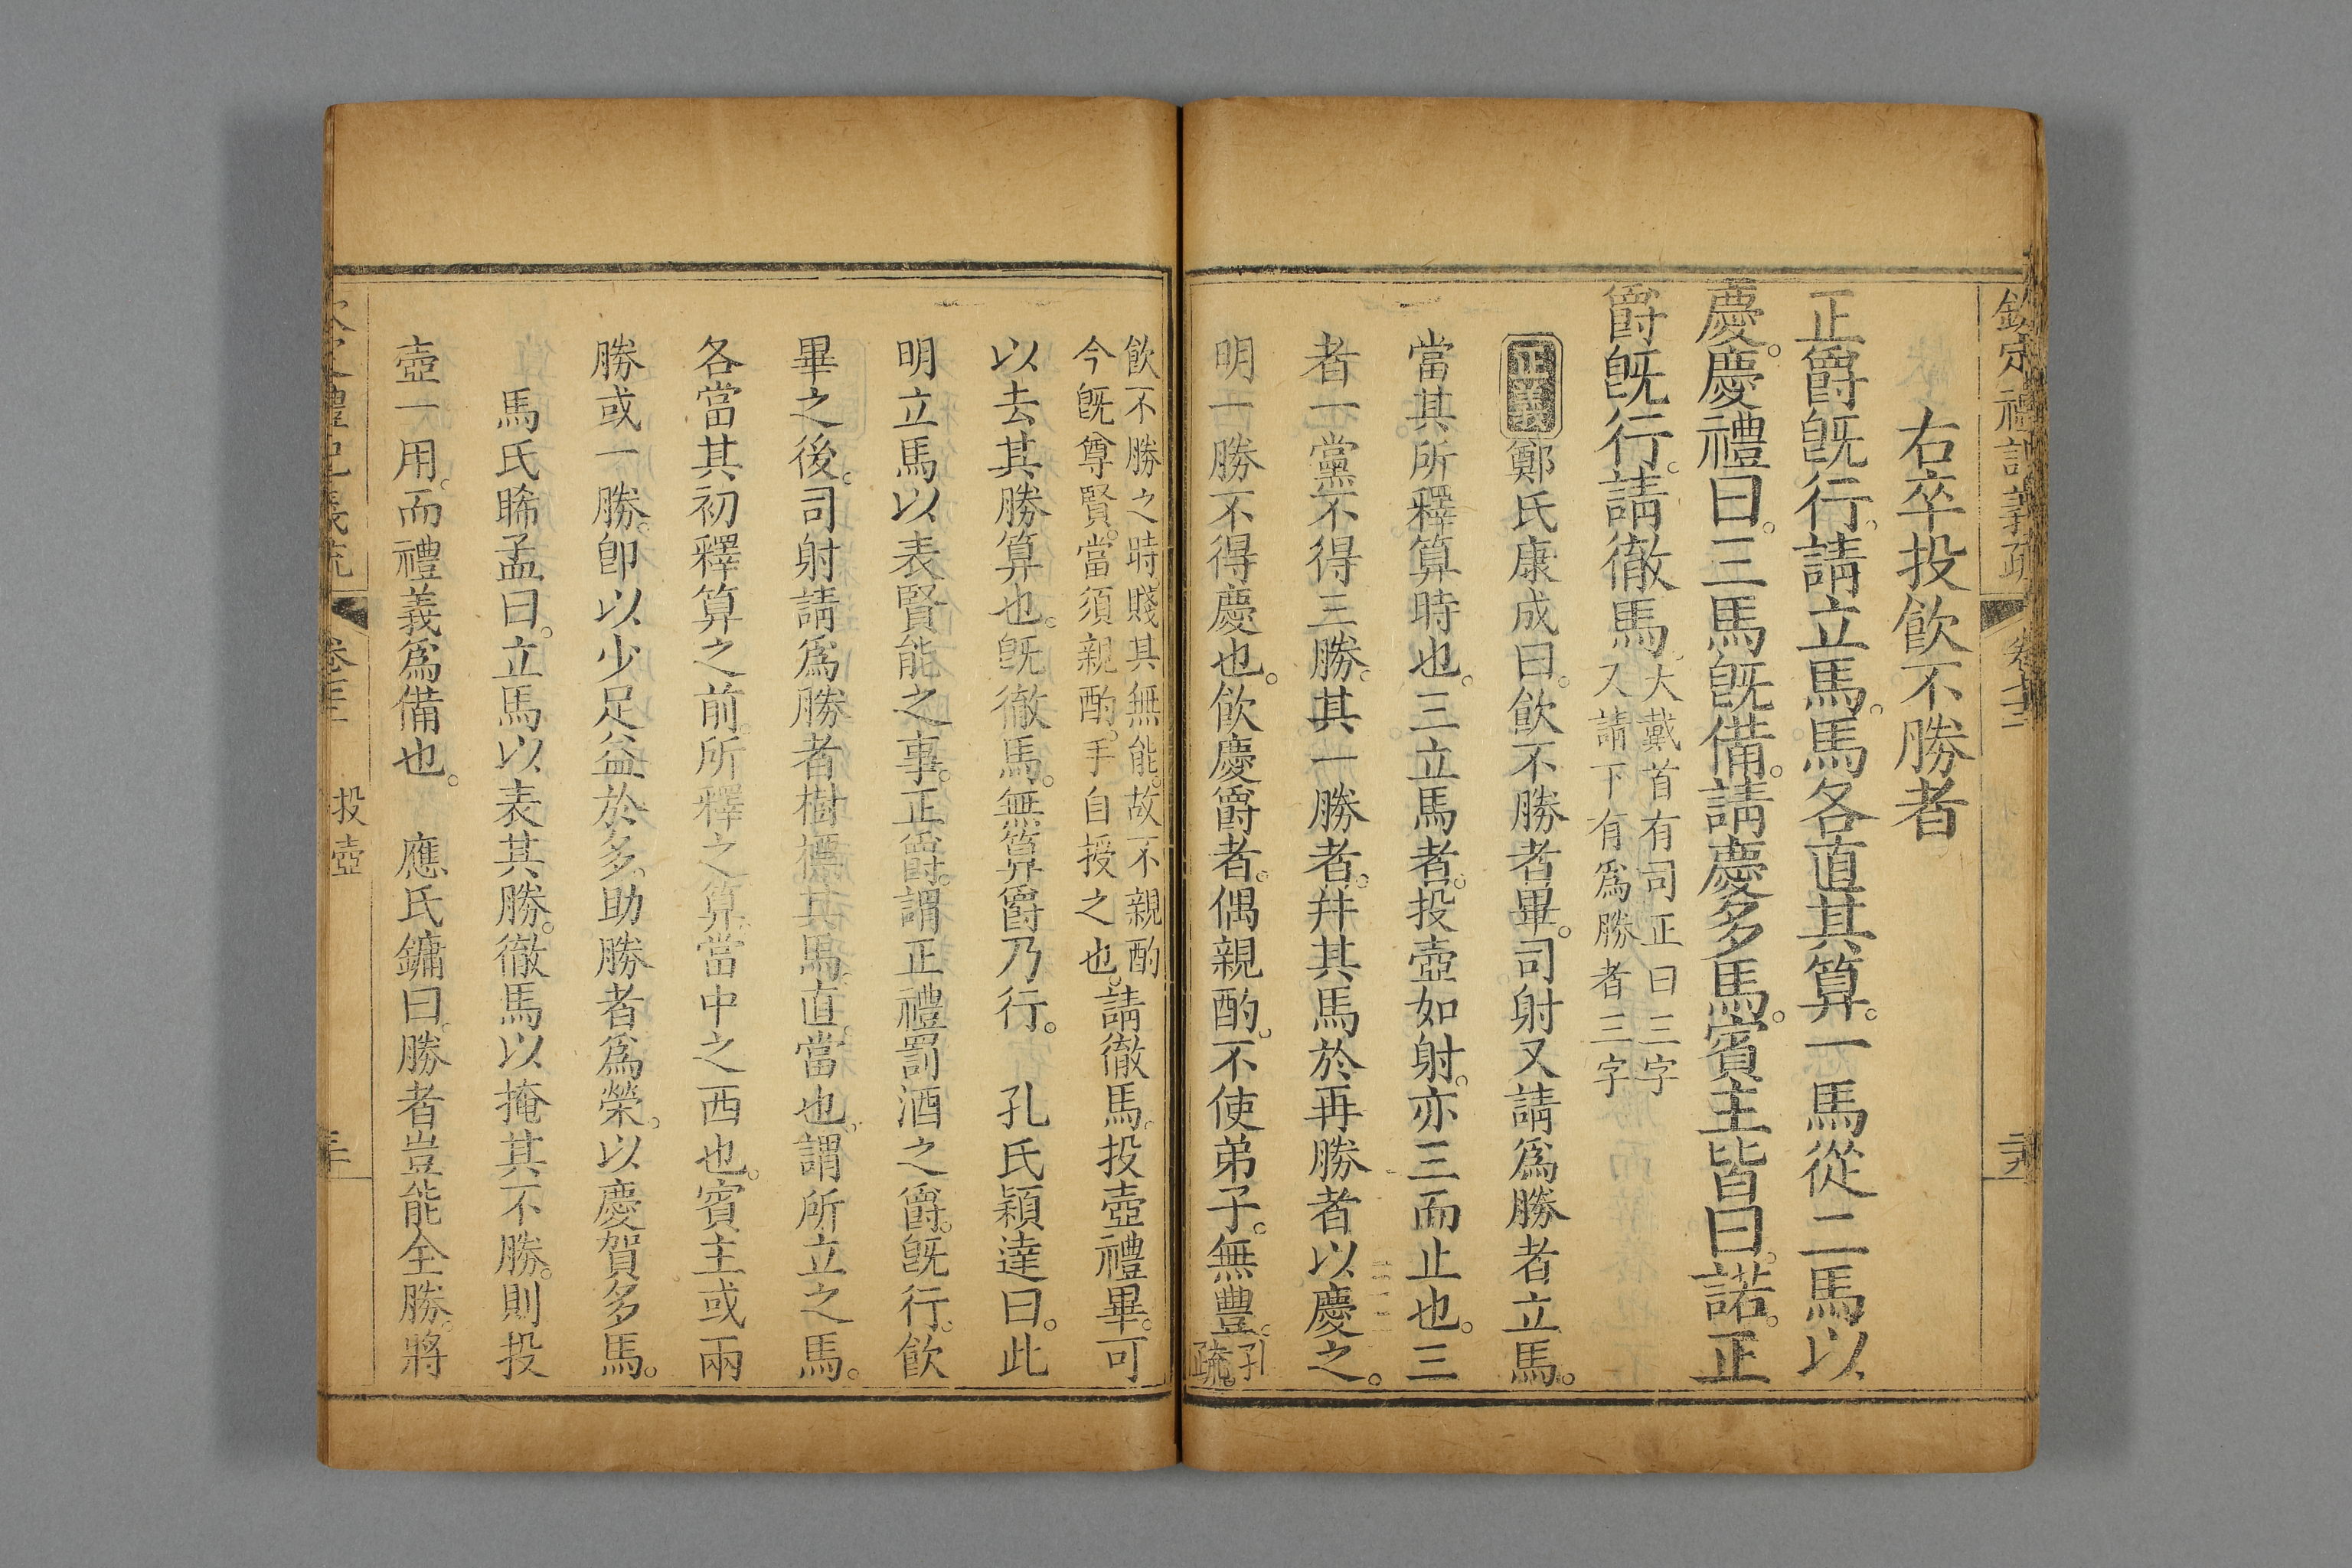 欽定禮記義疏
右卒投飲不勝者
正爵旣行。請立馬。馬各直其算。一馬從二馬以
慶。慶禮曰。三馬旣備。請慶多馬。賓主皆曰。諾。正
爵旣行。請徹馬。大戴首有司正曰三字
又請下有爲勝者三字
正義鄭氏康成曰。飲不勝者畢。司射又請爲勝者立馬。
當其所釋算時也。三立馬者。投壺如射。亦三而止也。三
者一黨不得三勝。其一勝者。幷其馬於再勝者以慶之。
明一勝不得慶也。飲慶爵者。偶親酌。不使弟子。無豐。孔
疏。
飲不勝之時賤其無能。故不親酌
今旣尊賢。當須親酌。手自授之也。請徹馬。投壺禮畢。可
以去其勝算也。旣徹馬。無筭爵乃行。 孔氏穎達曰。此
明立馬以表賢能之事。正爵。謂正禮罰酒之爵。旣行。飲
畢之後。司射請爲勝者樹標其馬。直。當也。謂所立之馬。
各當其初釋算之前。所釋之算。當中之西也。賓主或兩
勝或一勝。卽以少足益於多。助勝者爲榮。以慶賀多馬。
馬氏睎孟曰。立馬以表其勝。徹馬以掩其不勝。則投
壺一用。而禮義爲備也。 應氏鏞曰。勝者豈能全勝。將
投壺